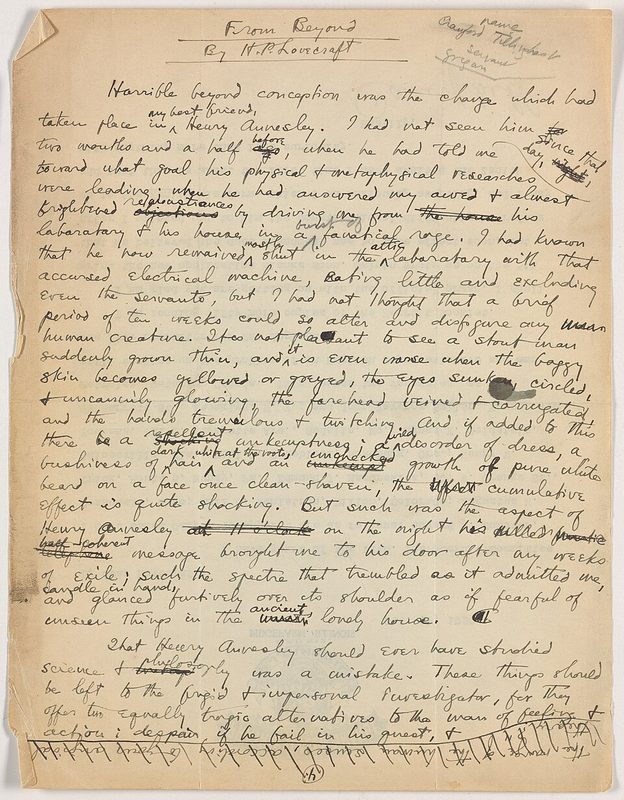 From Beyond
By H. P. Lovecraft
name
Crawford Tillinghast
servant
Gregory
Horrible beyond conception was the change which had
my best friend,
taken place in Henry Annesley. I had not seen him
since that
two months and a half before, when he had told me day,
toward what goal his physical & metaphysical researches
were leading; when he had answered my awed & almost
remonstrances
frightened objections by driving me from the house his
burst of
laboratory & his house in a fanatical rage. I had known
mostly attic
that he now remained shut in the laboratory with that
accursed electrical machine, eating little and excluding
even the servants, but I had not thought that a brief
period of ten weeks could so alter and disfigure any
human creature. It is not pleasant to see a stout man
suddenly grown thin, and it is even worse when the baggy
skin becomes yellowed or greyed, the eyes sunken, circled,
& uncannily glowing, the forehead veined & corrugated,
and the hands tremulous & twitching. And if added to this
repellent wild
there be a shocking unkemptness; a disorder of dress, a
dark white at the roots, unchecked
bushiness of hair and an unkempt growth of pure white
beard on a face once clean-shaven, the effect cumulative
effect is quite shocking. But such was the aspect of
Henry Annesley at 11 o'clock on the night his
half-coherent
telephone message brought me to his door after my weeks
of exile; such the spectre that trembled as it admitted me,
candle in hand,
and glanced furtively over its shoulder as if fearful of
ancient
unseen things in the lonely house.
That Henry Annesley should ever have studied
science & philosophy was a mistake. These things should
be left to the frigid & impersonal investigator, for they
offer two equally tragic alternatives to the man of feeling &
action; despair if he fail in his quest, &